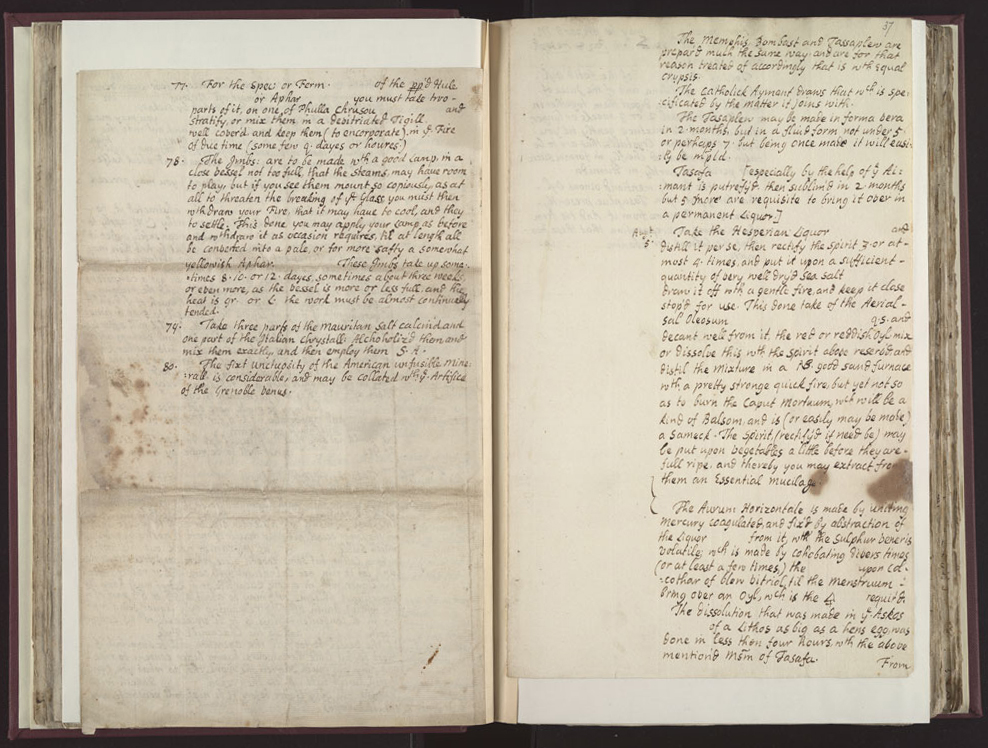 77. For the Spec: or Form of the ppd Hule
or Aphar you must take two
parts of it, on one, of Phulla Chrusou and
stratify, or mix them in a debitriated Tigill
well cover'd and keep them (to encorporate) in ye Fire
of due time (some few q. dayes or houres.)
78. The Jmbs: are to be made wth a good Lamp, in a
close vessel not too full, that the Steams, may have room
to play, but if you see them mount so copiously, as at
all to threaten the breaking of ye Glass you must then
withdraw your Fire, that it may have to cool, and they
to settle. This done you may apply your Lamp as before
and withdraw it as occasion requires, til at length all
be converted into a pale, or for more safty a somewhat
yellowish Aphar. These Jmbs take up some-
-times 8. 10. or 12. dayes, sometimes about three weeks
or even more, as the vessel is more or less full, and the
heat is gr. or L. the work must be almost continually
tended.
79. Take three parts of the Mauritan Salt calcin'd, and
one part of the Italian Chrystalls Alchoholiz'd them and
mix them exactly, and then employ them S. A.
80. The fixt unctuosity of the American infusible Mine-
-rall is considerable, and may be collected wth ye Artifice
of the Grenoble Venes.
37
The Memphis, Bombast and Tassaplew are
prepar'd much the same way; and are for that
reason treated of accordingly that is wth Equal
crypsis.
The Catholick Ayment draws that wch is spe-
-cificated by the matter it joins with.
The Tasaplew may be made in forma vera
in 2 months, but in a fluid form not under 5
or perhaps 7. but being once made it will easi-
-ly be mpld.
Tasafa [especially by the help of ye Ali-
-mant is putrefy'd then sublim'd in 2 months
but 5 more are requisite to bring it over in
a permanent Liquor.]
Take the Hesperian Liquor and
distill it per se, then rectify the Spirit 3. or at
most 4. times, and put it upon a sufficient
quantity of very well dry'd Sea salt
draw it off wth a gentle fire, and keep it close
stop'd for use. This done take of the Aerial
Sal Oleosum q. s. and
decant well from it, the red or reddish Oyl, mix
or dissolve this wth the Spirit above reserv'd and
distil the mixture in a good sand furnace
wth a pretty stronge quick fire, but yet not so
as to burn the Caput Mortuum, wch will be a
kind of Balsom, and is (or easily may be made)
a Sameck. The Spirit, (rectify'd if need be) may
be put upon Vegetables a little before they are
full ripe, and thereby you may extract from
them an Essential Mucilage
The Aurum Horizontale is made by uniting
Mercury coagulated, and fix'd by abstraction of
the Liquor from it, wth the Sulphur Veneris
volatile; wch is made by cohobating divers times
(or at least a few times,) the upon Col-
-cothar of blew Vitriol, til the Menstruum
bring over an Oyl, wch is the requir'd.
The Dissolution that was made in ye Askos
of a Lithos as big as a hens egg, was
done in less then four hours, wth the above
mention'd Msm of Tasafa.
From